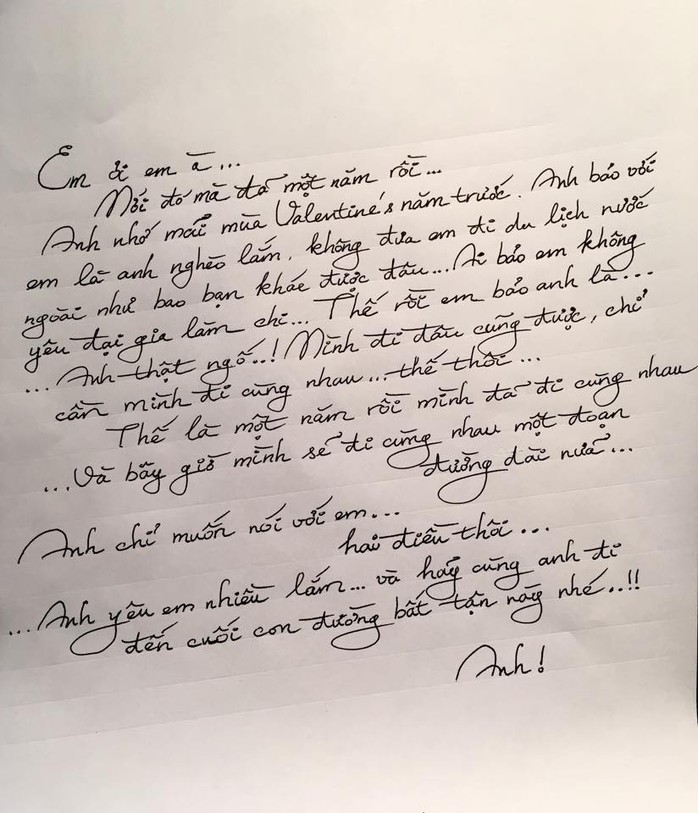 Em ơi em à...
Mới đó mà đã một năm rồi...
Anh nhớ mãi mùa Valentine's năm trước. Anh bảo với
em là anh nghèo lắm, không đưa em đi du lịch nước
ngoài như bao bạn khác được đâu... Ai bảo em không
yêu đại gia làm chi... Thế rồi em bảo anh là...
... Anh thật ngố..! Mình đi đâu cũng được, chỉ
cần mình đi cùng nhau... thế thôi...
Thế là một năm rồi mình đã đi cùng nhau
... Và bây giờ mình sẽ đi cùng nhau một đoạn
đường dài nữa...
Anh chỉ muốn nói với em...
hai điều thôi...
... Anh yêu em nhiều lắm... và hãy cùng anh đi
đến cuối con đường bất tận này nhé..!!
Anh!